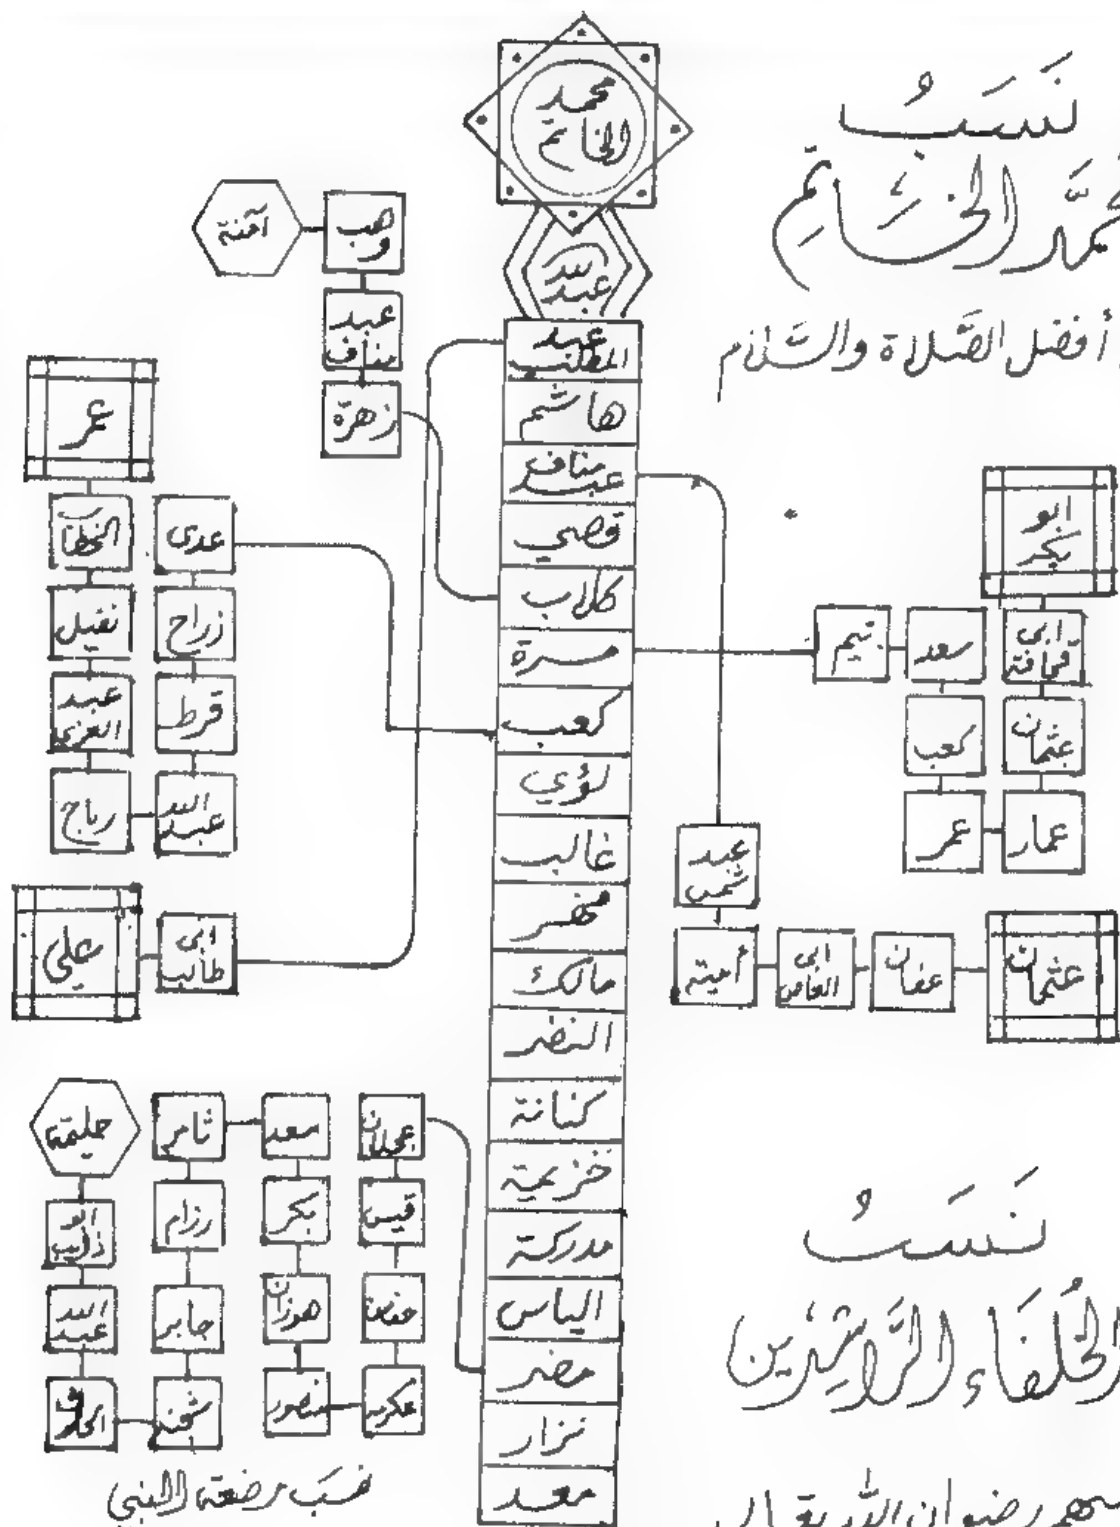 نَسَبُ
محمَّد الخَاتِم
أفضل الصَّلاة والسَّلام
محمد
الخاتم
عبد الله
عبد
المطلب
هاشم
عبد مناف
قصي
كلاب
مرة
كعب
لؤي
غالب
فهر
مالك
النضر
كنانة
خزيمة
مدركة
الياس
مضر
نزار
معد
آمنة
وهب
عبد
مناف
زهرة
عمر
الخطاب
نفيل
عبد
العزى
رباح
عبد الله
قرط
زراح
عدى
علي
ابى
طالب
ابو
بكر
ابى
قحافة
عثمان
عمار
عمر
كعب
سعد
تيم
عبد
شمس
أمية
ابى
العاص
عفان
عثمان
حليمة
ابو
ذئيب
عبد الله
شجنه
جابر
رزام
سعد
بكر
هوزان
منصور
عكرمه
قيس
نسَب مرضعة النبي
نَسَبُ
الخُلَفَاء الرَّاشِدِين
رضوان الله